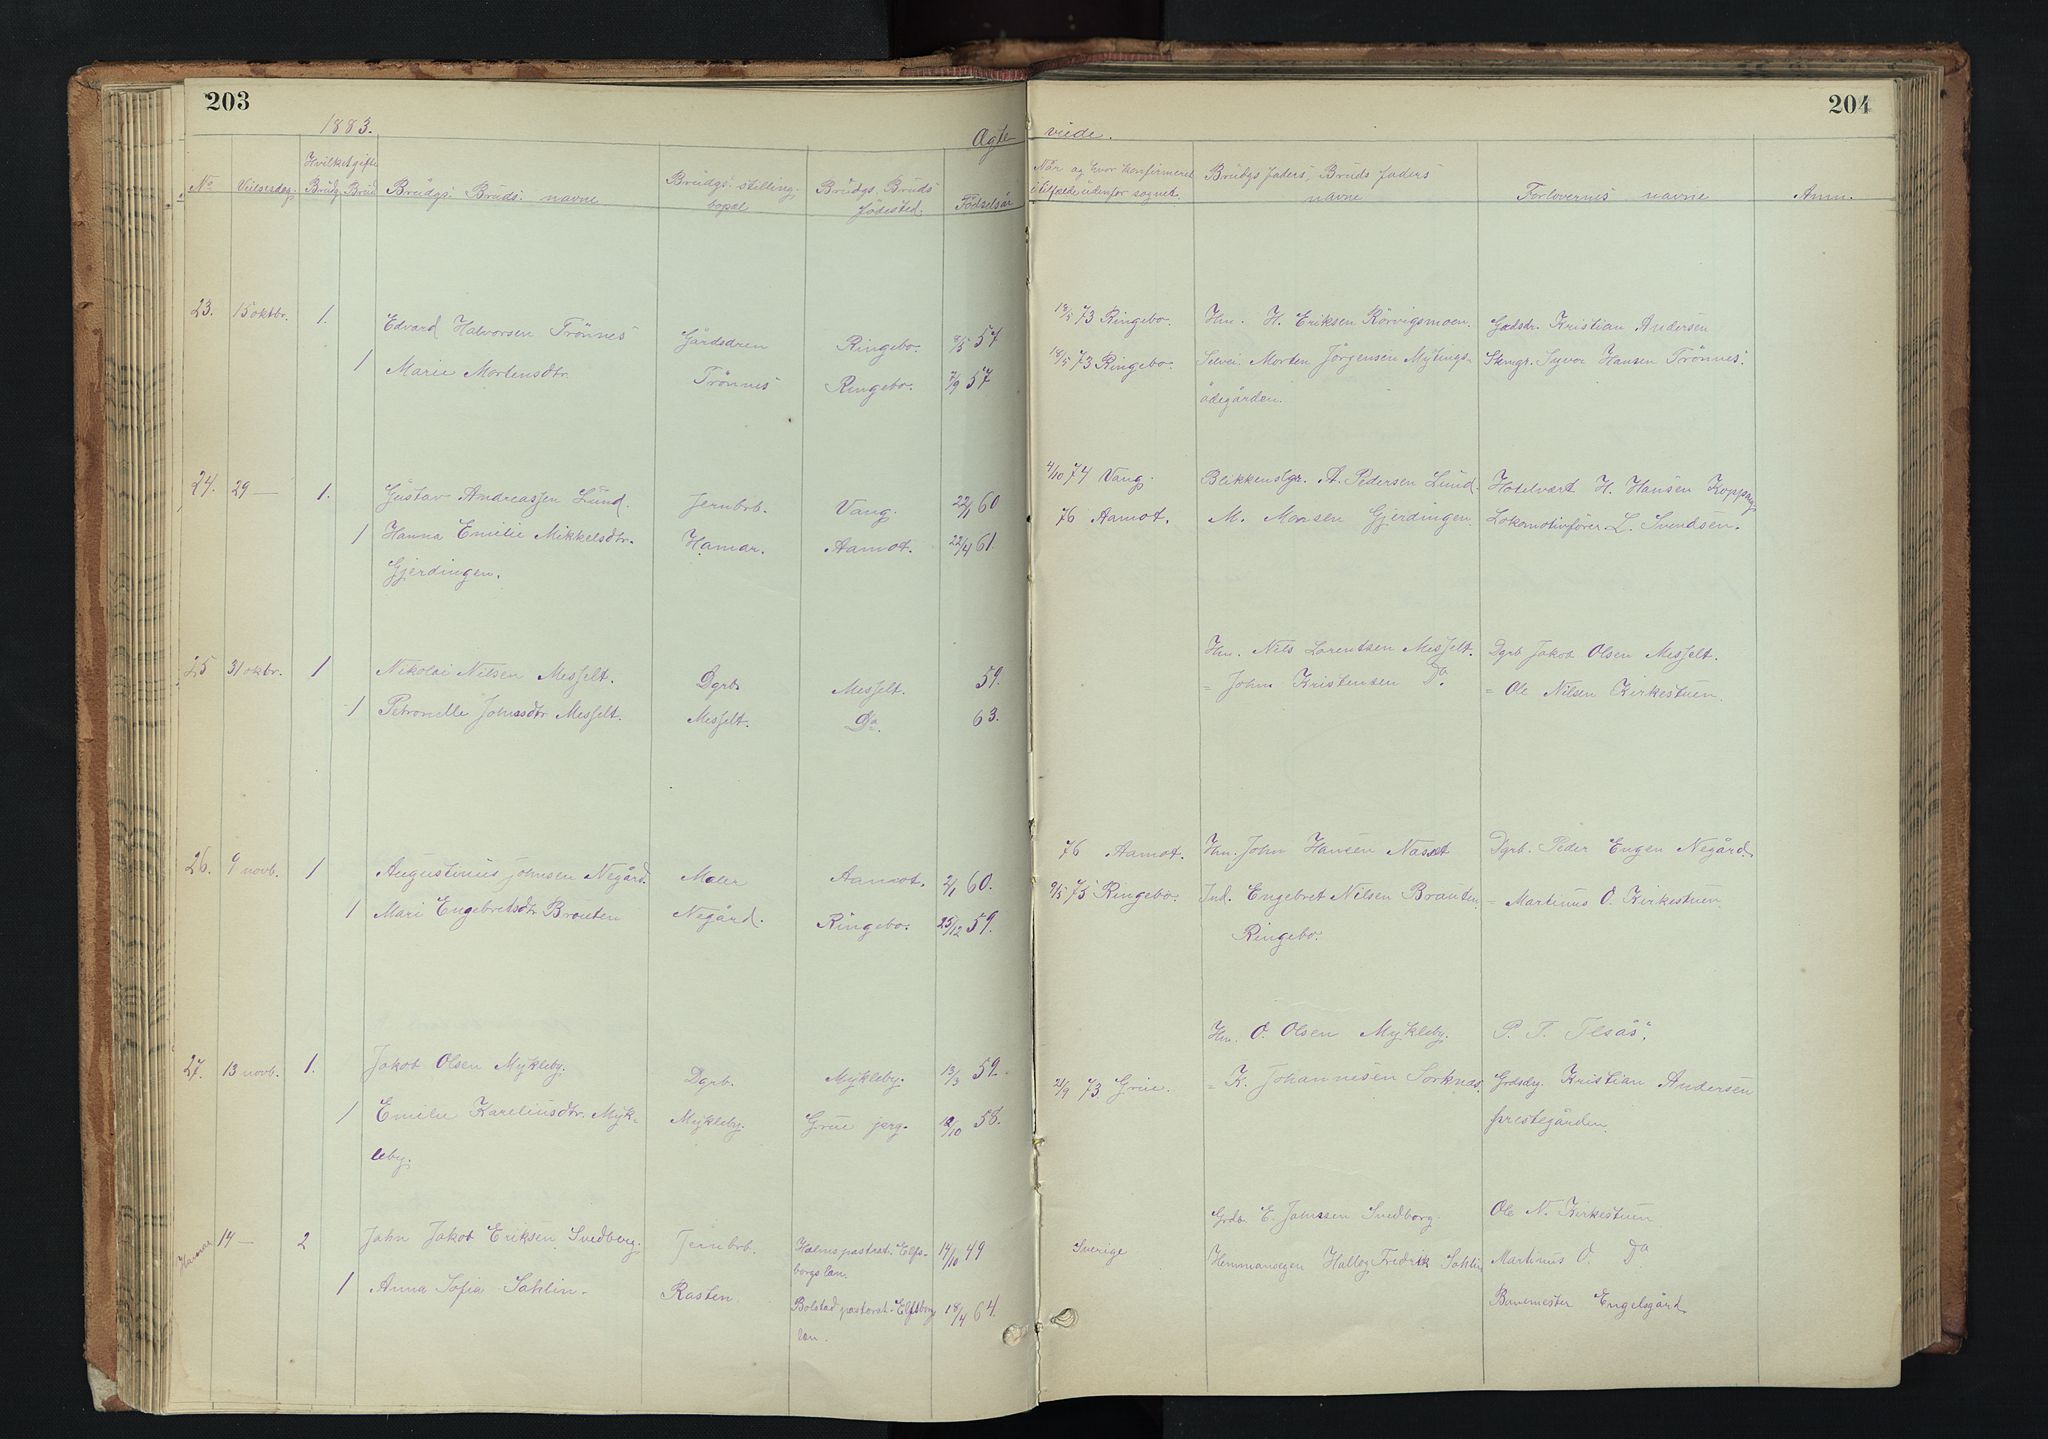 203
204
1883.
Ægte
viede.
No Vielsesdag. Hvilket gifte Brudg. Brud Brudgs. Bruds: navne Brudgs. stilling. bopæl Brudgs. Bruds fødested. Fødselsår
Når og hvor konfirmeret i tilfælde udenfor sognet. Brudgs faders, Bruds faders navne Forlovernes navne Anm.
23. 15 oktbr. 1. Edvard Halvorsen Trönnes Gårdsdren Ringebo. 8/5 54
73 Ringebo. Hm. H. Eriksen Rörvigsmoen. Gådsdr. Kristian Andersen
1 Marie Mortensdtr. Trönnes Ringebo. 7/9 57
18/5 73 Ringebo. Selvei. Morten Jörgensen Mytings- Skmgr. Syver Hansen Trönnes.
ödegården.
24. 29 — 1. Gustav Andreassen Lund. Jernbrb. Vang. 22/1 60
4/10 74 Vang. Blikkenslgr. A. Pedersen Lund. Hotelvært H. Hansen Koppang
1 Hanna Emilie Mikkelsdtr. Hamar. Aamot. 22/4 61.
Gjerdingen.
76 Aamot. M. Monsen Gjerdingen. Lokomotivförer L. Svendsen.
25 31 oktbr. 1 Nikolai Nilsen Messelt. Dgrb Messelt. 59.
Hm. Nils Lorentsen Messelt. Dgrb Jakob Olsen Messelt.
1 Petronelle Johnsdtr Messelt. Messelt. Do. 63.
= John Kristensen Do. = Ole Nilsen Kirkestuen.
26. 9 novb. 1 Augustinus Johnsen Negård. Maler Aamot. 2/1 60.
76 Aamot. Hm. John Hansen Næset Dgrb. Peder Engen Negård.
1 Mari Engebretsdtr Brouten Negård. Ringebo. 25/12 59.
9/5 75 Ringebo. Ind. Engebret Nilsen Brauten. = Martinus O. Kirkestuen.
Ringebo.
27. 13 novb. 1. Jakob Olsen Mykleby. Dgrb. Mykleby. 13/3 59.
Hm. O. Olsen Mykleby. P. T. Tesås.
1 Emilie Kareliusdtr. Myk- Mykleby. Grue prg. 58.
leby.
21/9 73 Grue. = K. Johannesen Sorknæs. Grdsdg. Kristian Andersen
prestegården.
Hamar 14 — 2 John Jakob Eriksen Svedberg. Jernbrb. Holms pastorat. Elfs- 14/10 49
borgs län.
Grdb. E. Johnssen Svedborg. Ole N. Kirkestuen
1 Anna Sofia Sahlin. Rasten. Bolstad pastorat. Elfsborg 18/4 64.
län.
Sverige Hemmansegen Halley Fredrik Sahlin Martinus O. Do
Banemester Engelsgård